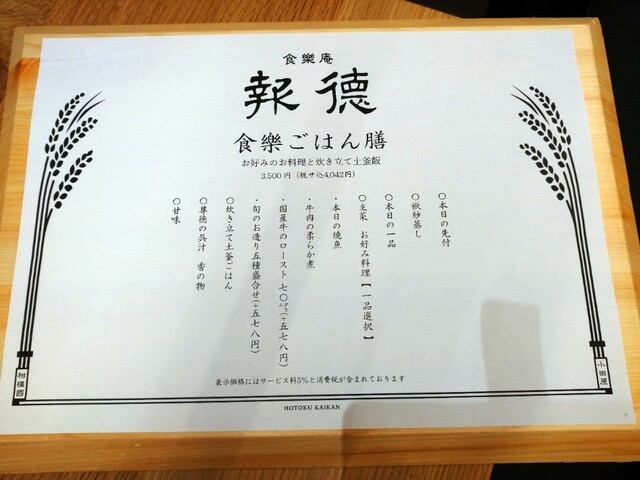 食樂庵
報徳
食樂ごはん膳
お好みのお料理と炊き立て土釜飯
3,500円（税サ込4,042円）
〇本日の先付
〇袱紗蒸し
〇本日の一品
〇主菜 お好み料理【一品選択】
・本日の焼魚
・牛肉の柔らか煮
・国産牛のロースト七〇グラム(+五七八円)
・旬のお造り五種盛合せ(+五七八円)
〇炊き立て土釜ごはん
〇尊徳の呉汁 香の物
〇甘味
相模國
小田原
表示価格にはサービス料5%と消費税が含まれております
HOTOKU KAIKAN